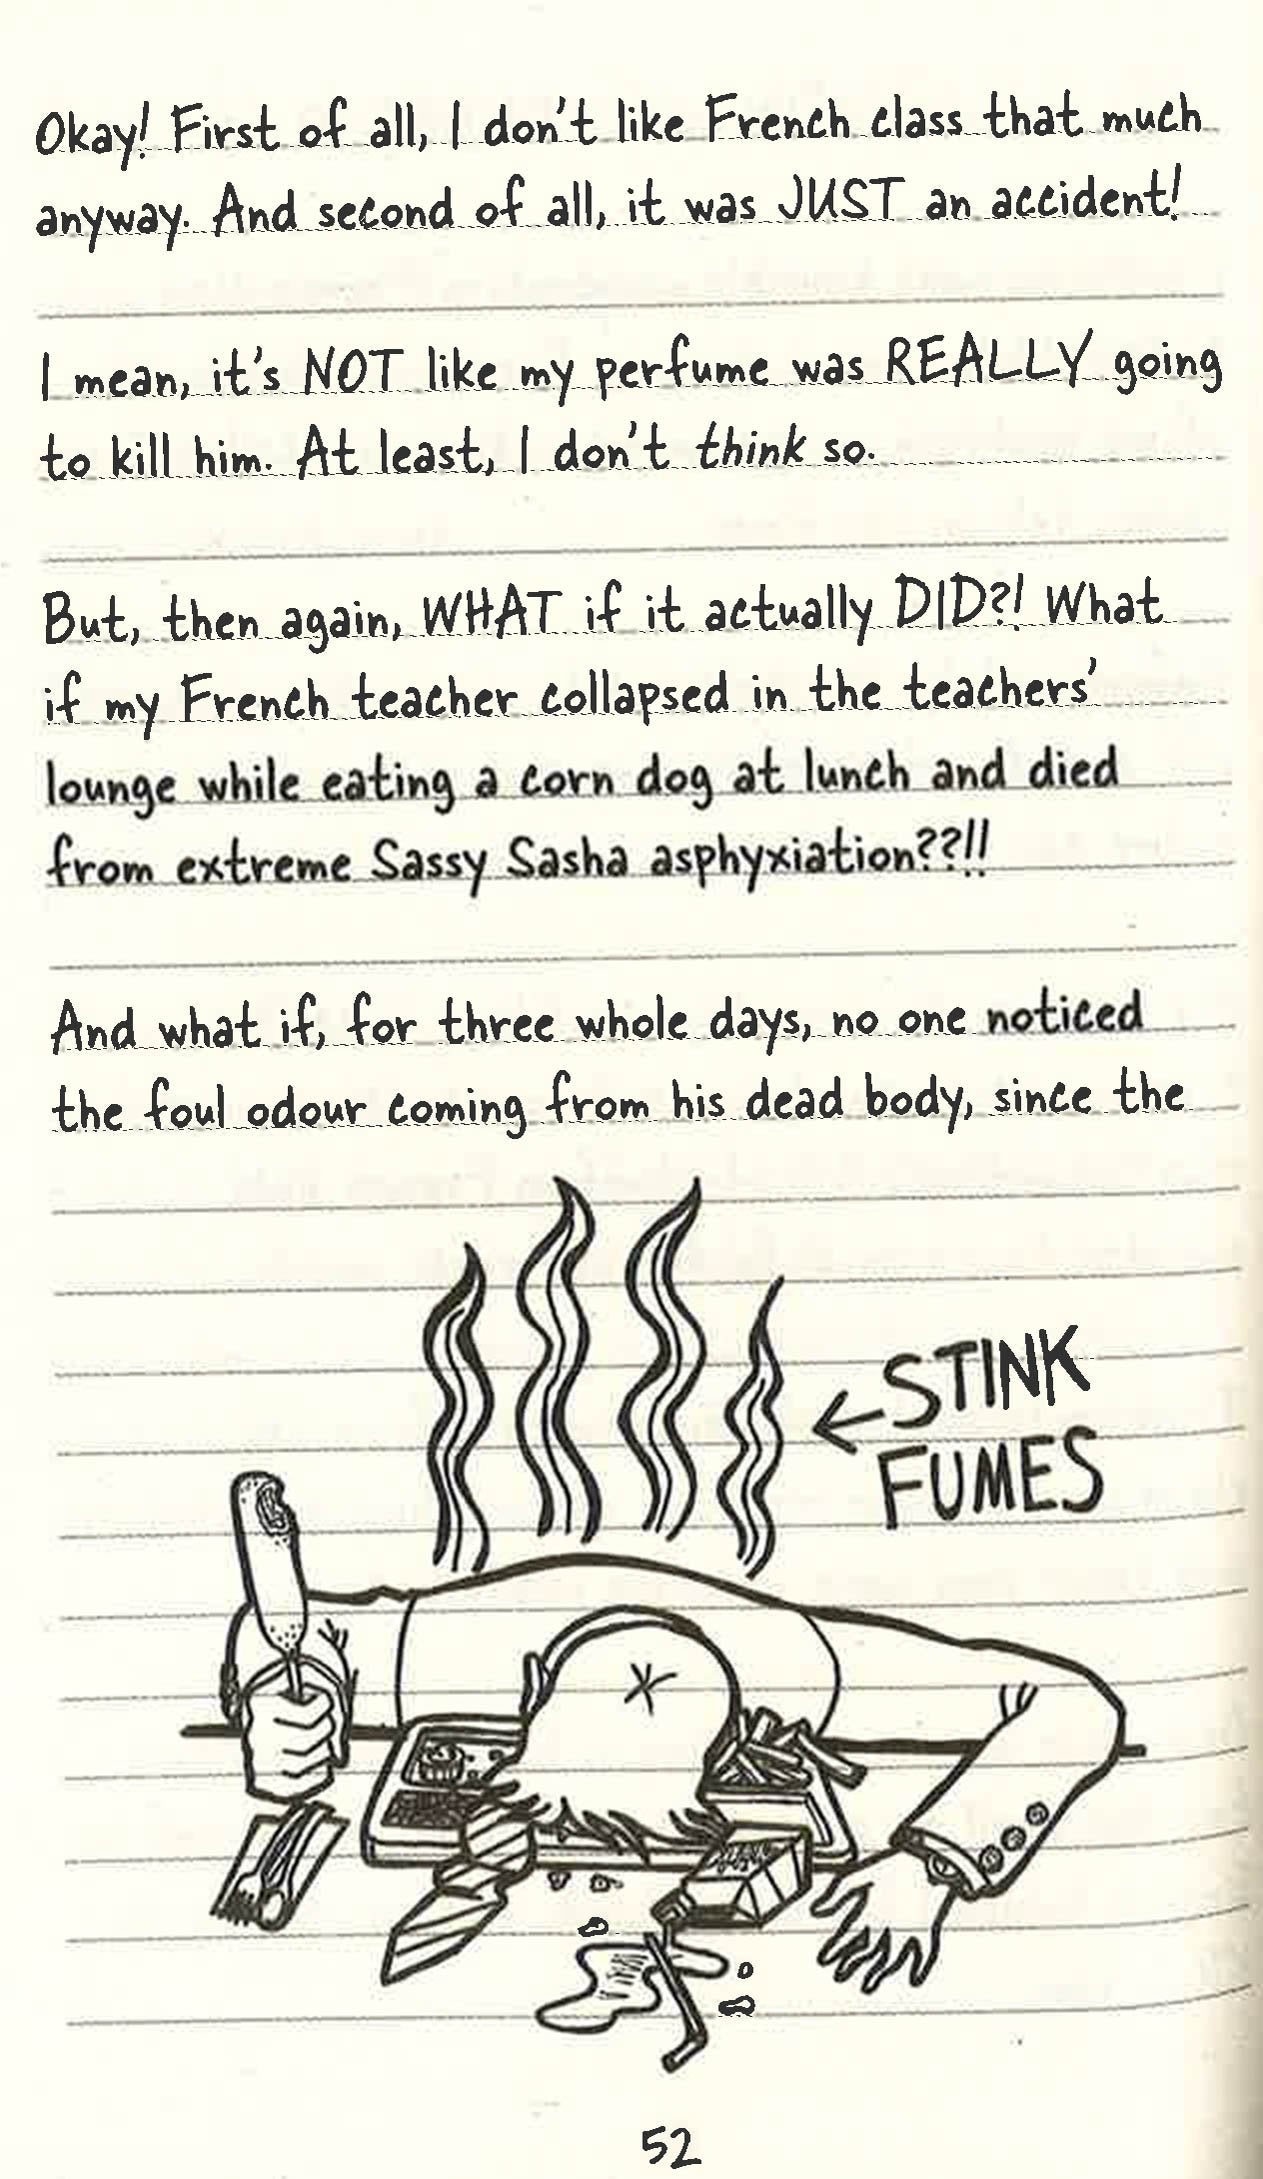 Okay! First of all, I don't like French class that much
anyway. And second of all, it was JUST an accident!
I mean, it's NOT like my perfume was REALLY going
to kill him. At least, I don't think so.
But, then again, WHAT if it actually DID?! What
if my French teacher collapsed in the teachers'
lounge while eating a corn dog at lunch and died
from extreme Sassy Sasha asphyxiation??!!
And what if, for three whole days, no one noticed
the foul odour coming from his dead body, since the
←STINK
FUMES
52